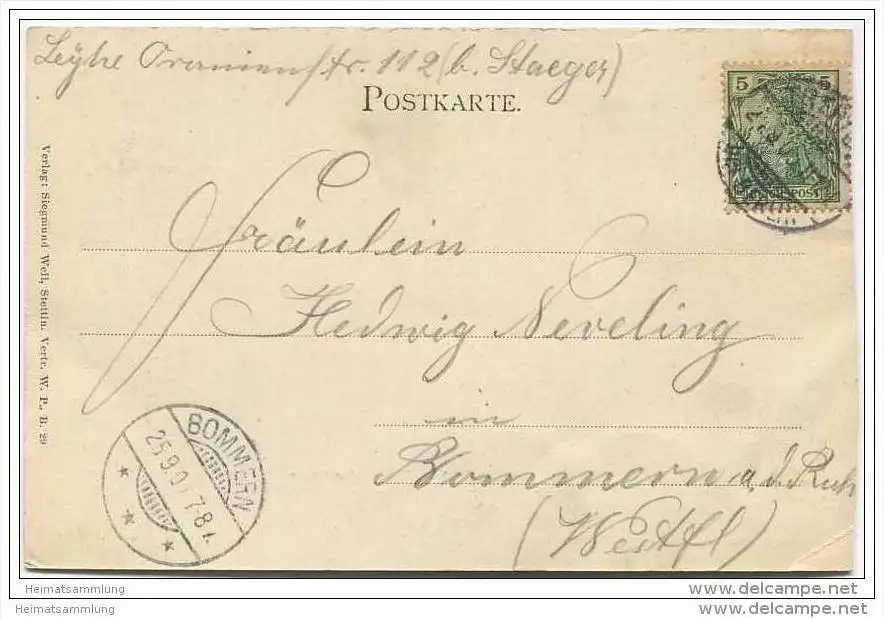 Leyhe Oranienstr. 112 (b. Staeger)
POSTKARTE.
5 5
Fräulein
Hedwig Neveling
in
Bommern a. d. Ruh
(Westfl)
BOMMERN
25 9 0 7-8
Verlag: Siegmund Weil, Stettin. Vertr. W. P., B. 29
Heimatsammlung
www.delcampe.net
Heimatsammlung
www.delcampe.net